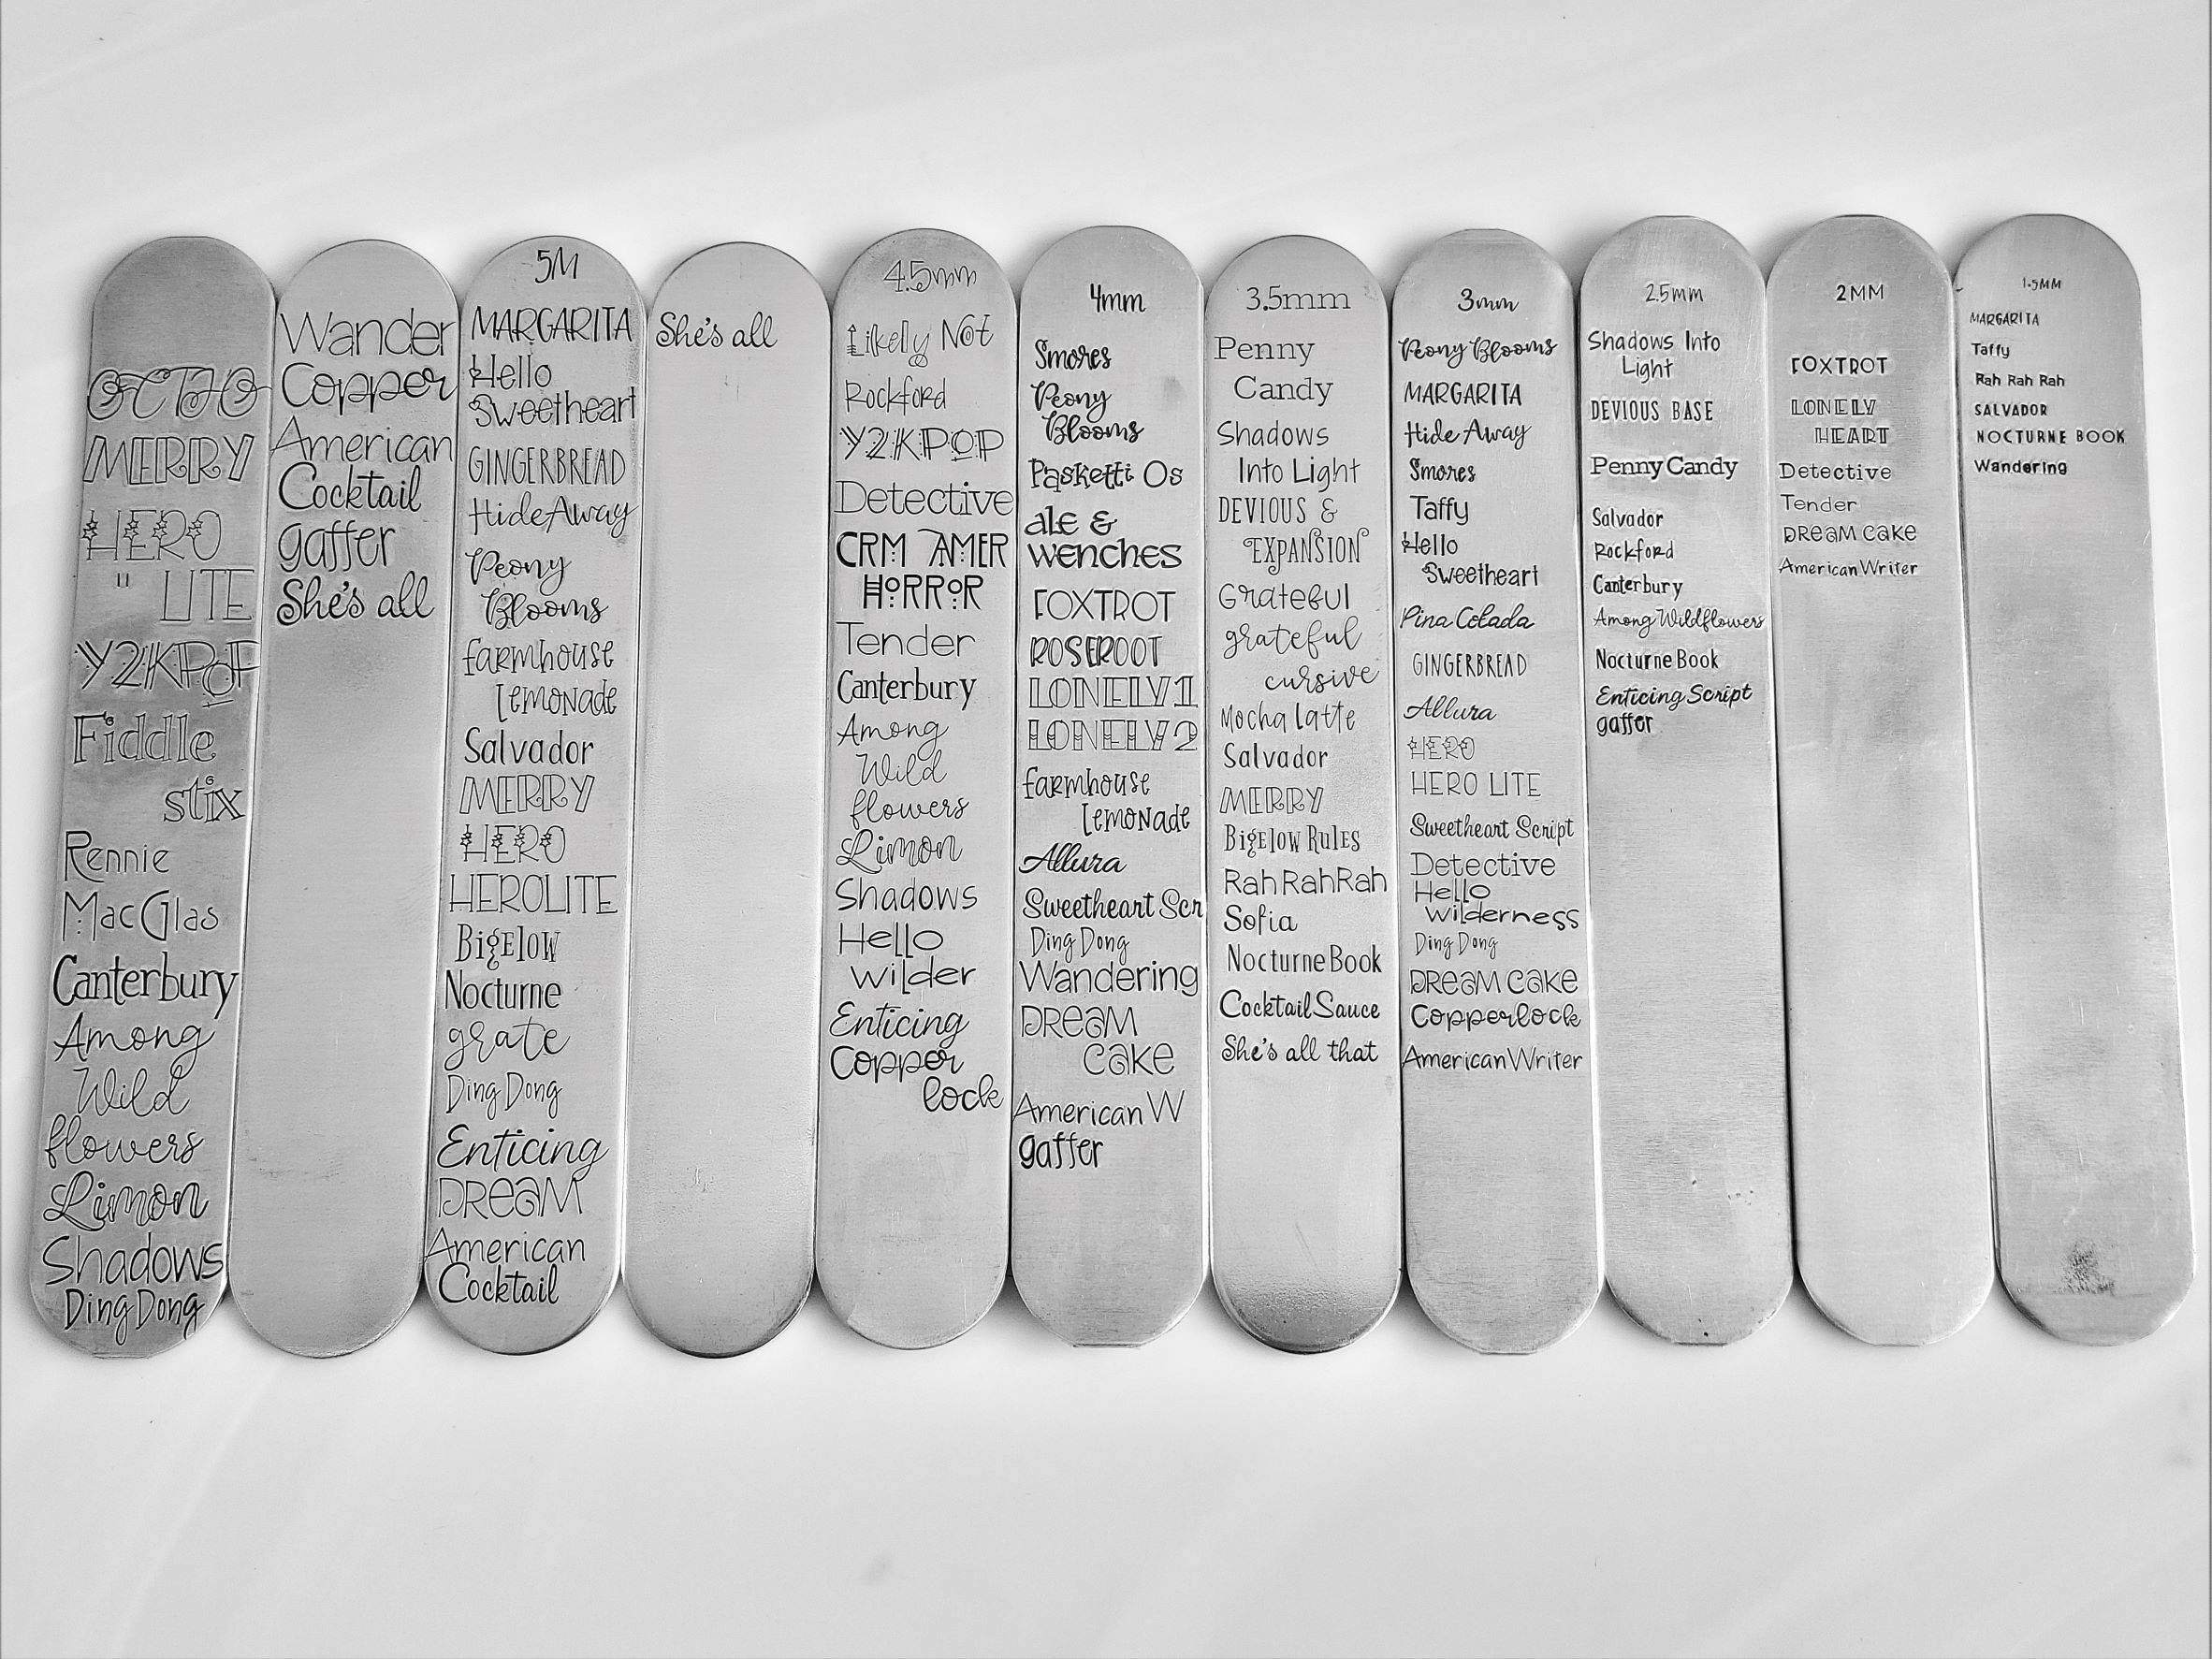 OCTHO
MERRY
HERO
" LITE
Y2KPOP
Fiddle
stix
Rennie
MacGlas
Canterbury
Among
Wild
flowers
Limon
Shadows
Ding Dong
Wander
Copper
American
Cocktail
gaffer
She's all
5M
MARGARITA
Hello
Sweetheart
GINGERBREAD
HideAway
Peony
Blooms
farmhouse
Lemonade
Salvador
MERRY
HERO
HEROLITE
Bigelow
Nocturne
grate
Ding Dong
Enticing
DREAM
American
Cocktail
She's all
4.5mm
Likely Not
Rockford
Y2KPOP
Detective
CRM AMER
HORROR
Tender
Canterbury
Among
Wild
flowers
Limon
Shadows
Hello
wilder
Enticing
Copper
lock
4mm
Smores
Peony
Blooms
Pasketti Os
ale &
wenches
FOXTROT
ROSEROOT
LONELY1
LONELY2
farmhouse
Lemonade
Allura
Sweetheart Scr
Ding Dong
Wandering
DREAM
CAKE
American W
gaffer
3.5mm
Penny
Candy
Shadows
Into Light
DEVIOUS &
EXPANSION
Grateful
grateful
cursive
Mocha Latte
Salvador
MERRY
Bigelow Rules
Rah RahRah
Sofia
NocturneBook
CocktailSauce
She's all that
3mm
Peony Blooms
MARGARITA
Hide Away
Smores
Taffy
Hello
Sweetheart
Pina Colada
GINGERBREAD
Allura
HERO
HERO LITE
Sweetheart Script
Detective
Hello
wilderness
Ding Dong
DREAM CAKE
Copperlock
AmericanWriter
2.5mm
Shadows Into
Light
DEVIOUS BASE
Penny Candy
Salvador
Rockford
Canterbury
Among Wildflowers
Nocturne Book
Enticing Script
gaffer
2MM
FOXTROT
LONELY
HEART
Detective
Tender
DREAM CAKE
American Writer
1.5MM
MARGARITA
Taffy
Rah Rah Rah
SALVADOR
NOCTURNE BOOK
Wandering